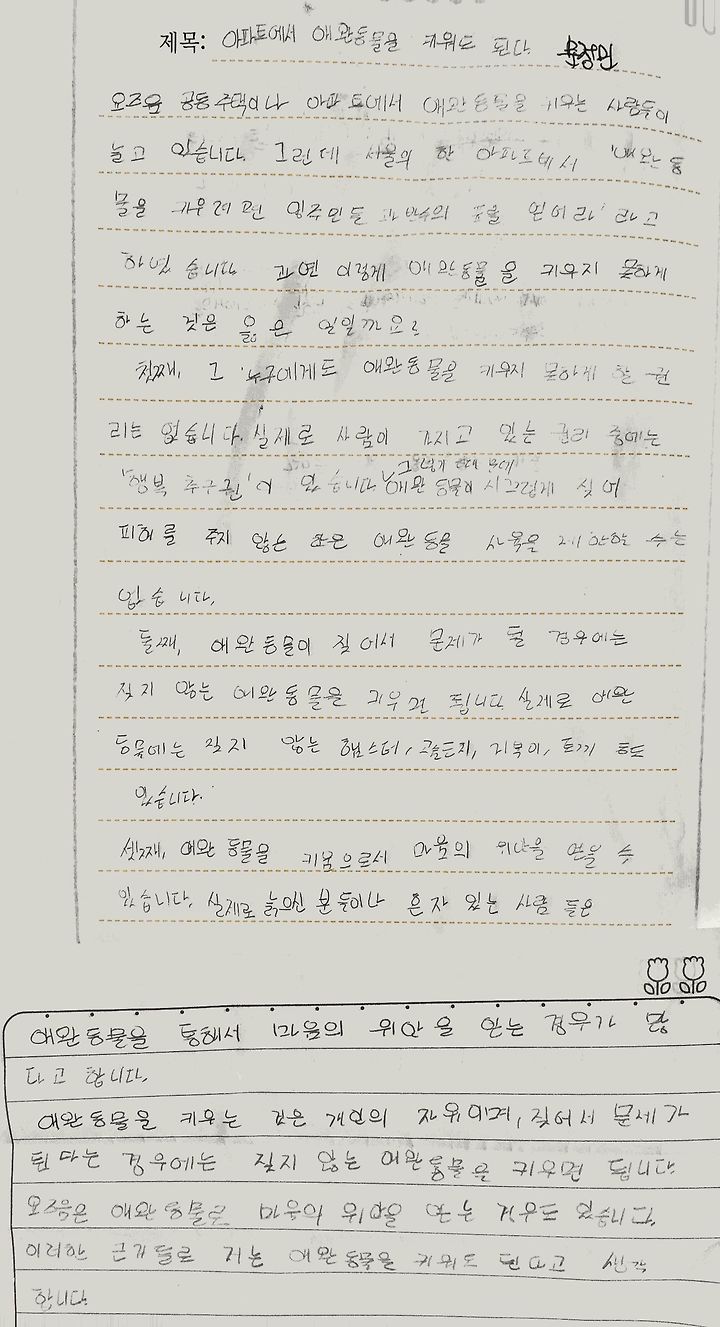 제목: 아파트에서 애완동물을 키워도 된다
요즈음 공동주택이나 아파트에서 애완동물을 키우는 사람들이
늘고 있습니다. 그런데 서울의 한 아파트에서 '애완동
물을 키우려면 입주민들 과반수의 동을 얻어라' 라고
하였습니다 과연 이렇게 애완동물을 키우지 못하게
하는 것은 옳은 일일까요?
첫째, 그 누구에게도 애완동물을 키우지 못하게 할 권
리는 없습니다. 실제로 사람이 가지고 있는 권리 중에는
'행복 추구권'이 있습니다 애완동물이 시끄럽게 짖어
피해를 주지 않는 한은 애완동물 사육을 제한할 수는
없습니다.
둘째, 애완동물이 짖어서 문제가 될 경우에는
짖지 않는 애완동물을 키우면 됩니다 실제로 애완
동물에는 짖지 않는 햄스터, 고슴도치, 거북이, 토끼 등도
있습니다.
셋째, 애완동물을 키움으로서 마음의 위안을 얻을 수
있습니다. 실제로 늙으신 분들이나 혼자 있는 사람들은
애완동물을 통해서 마음의 위안을 얻는 경우가 많
다고 합니다.
애완동물을 키우는 것은 개인의 자유이며, 짖어서 문제가
된다는 경우에는 짖지 않는 애완동물을 키우면 됩니다.
요즈음은 애완동물로 마음의 위안을 얻는 경우도 있습니다.
이러한 근거들로 저는 애완동물을 키워도 된다고 생각
합니다.